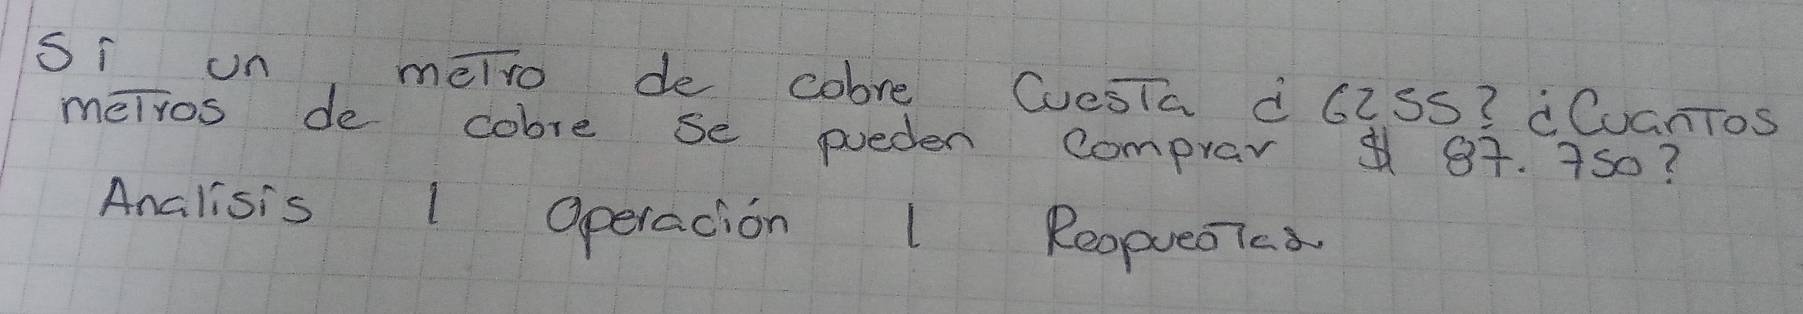 Si un metro de cobre Cuesta ¿ 6255? ¿Cuantos
metros de cobre se pueden comprar $ 87.750?
Analisis | Operación | Respuestas